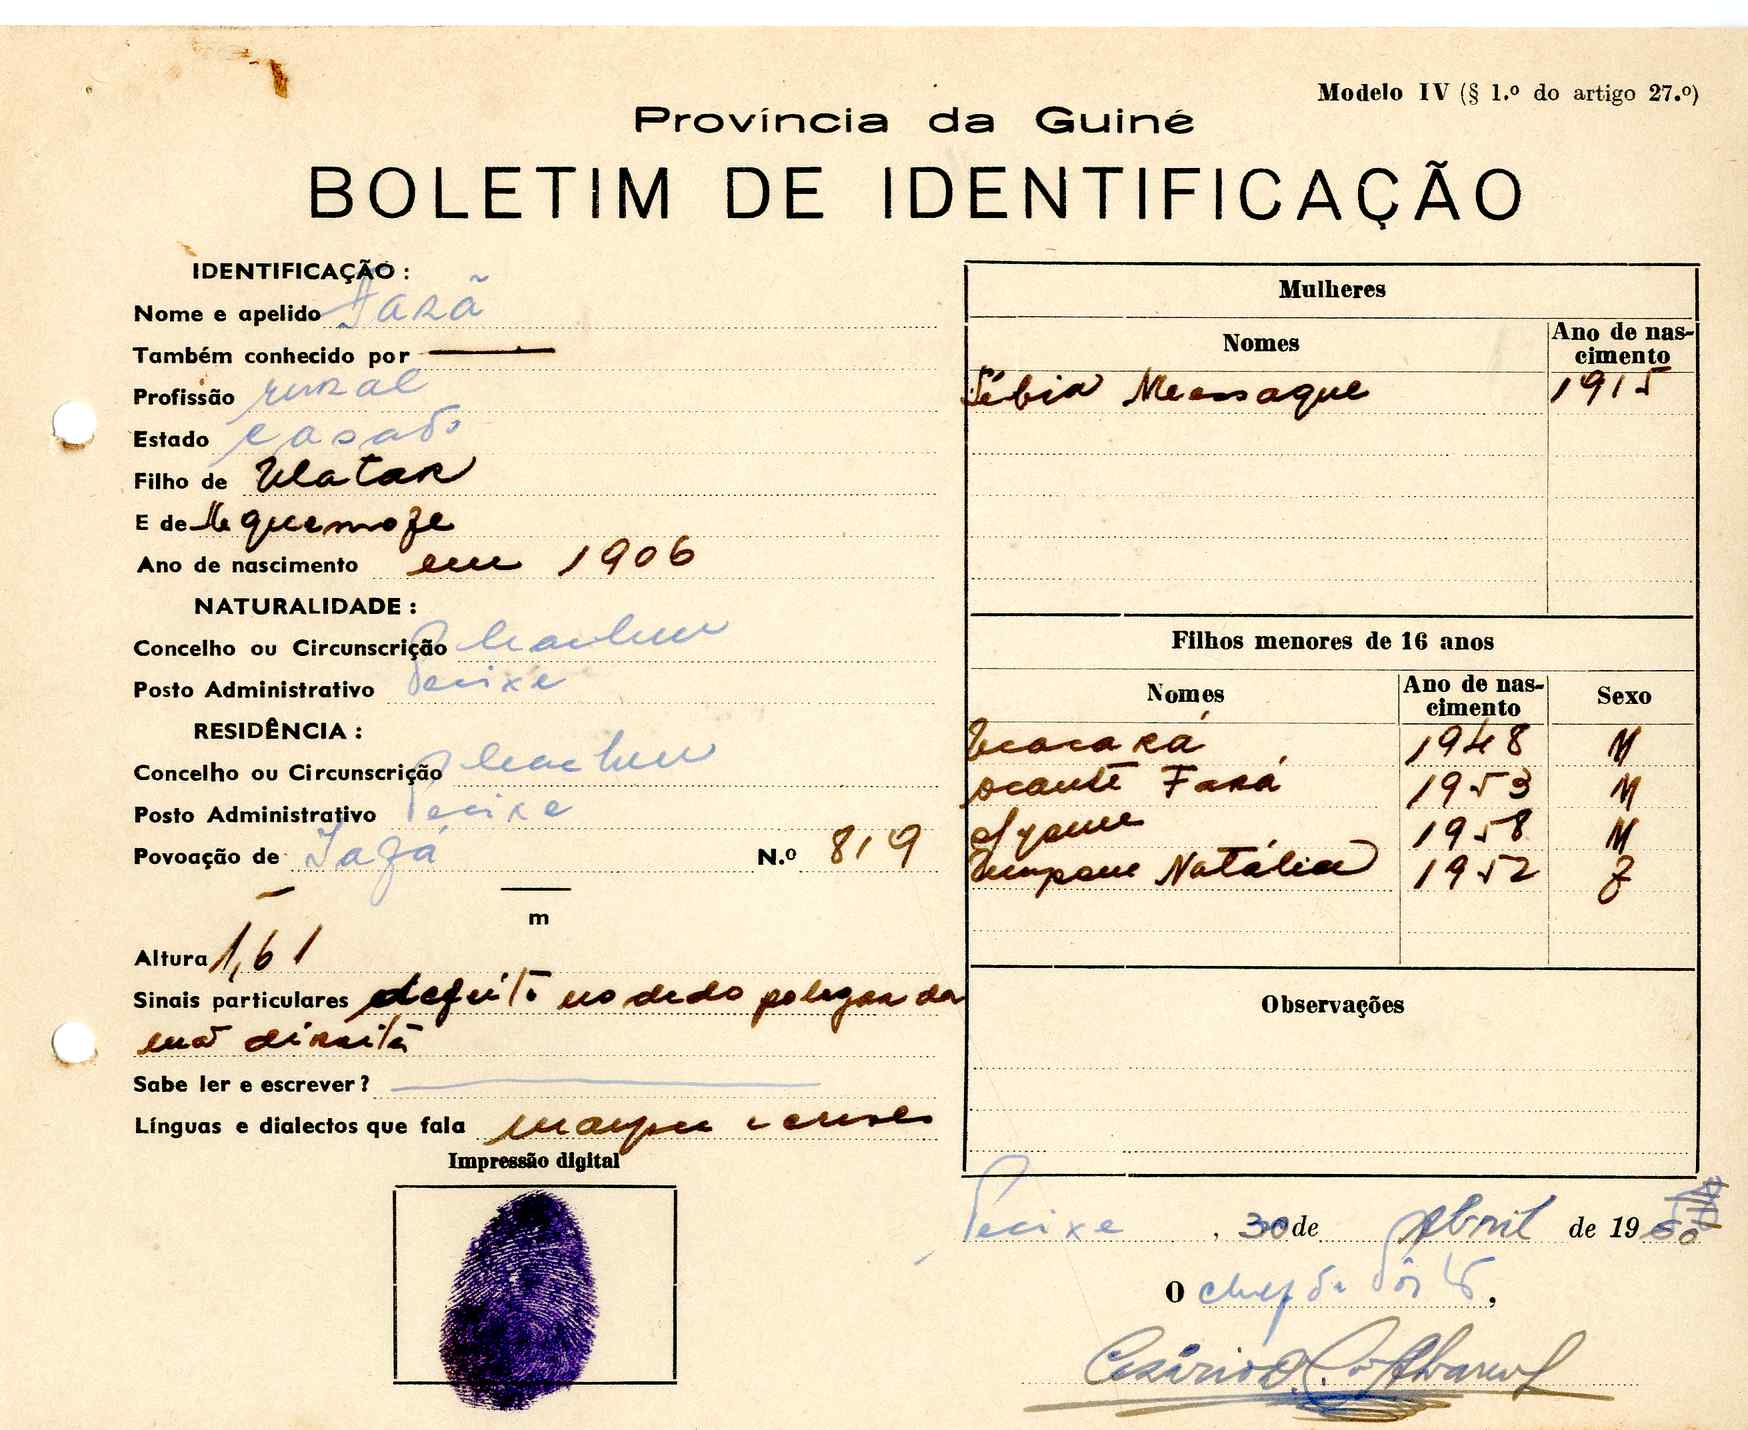 Modelo IV (§ 1.º do artigo 27.º)
Província da Guiné
BOLETIM DE IDENTIFICAÇÃO
IDENTIFICAÇÃO :
Nome e apelido
Também conhecido por —
Profissão rural
Estado casado
Filho de Ulatar
E de
Ano de nascimento em 1906
NATURALIDADE :
Concelho ou Circunscrição
Posto Administrativo Pecixe
RESIDÊNCIA :
Concelho ou Circunscrição
Posto Administrativo Pecixe
Povoação de N.º 819
m
Altura 1,61
Sinais particulares defeito no dedo polegar da
mão direita
Sabe ler e escrever? —
Línguas e dialectos que fala e
Impressão digital
Mulheres
Nomes Ano de nas-
cimento
1915
Filhos menores de 16 anos
Nomes Ano de nas-
cimento Sexo
1948 M
Fará 1953 M
1958 M
Natália 1952 F
Observações
Pecixe, 30 de Abril de 1960
O chefe do Pôsto,